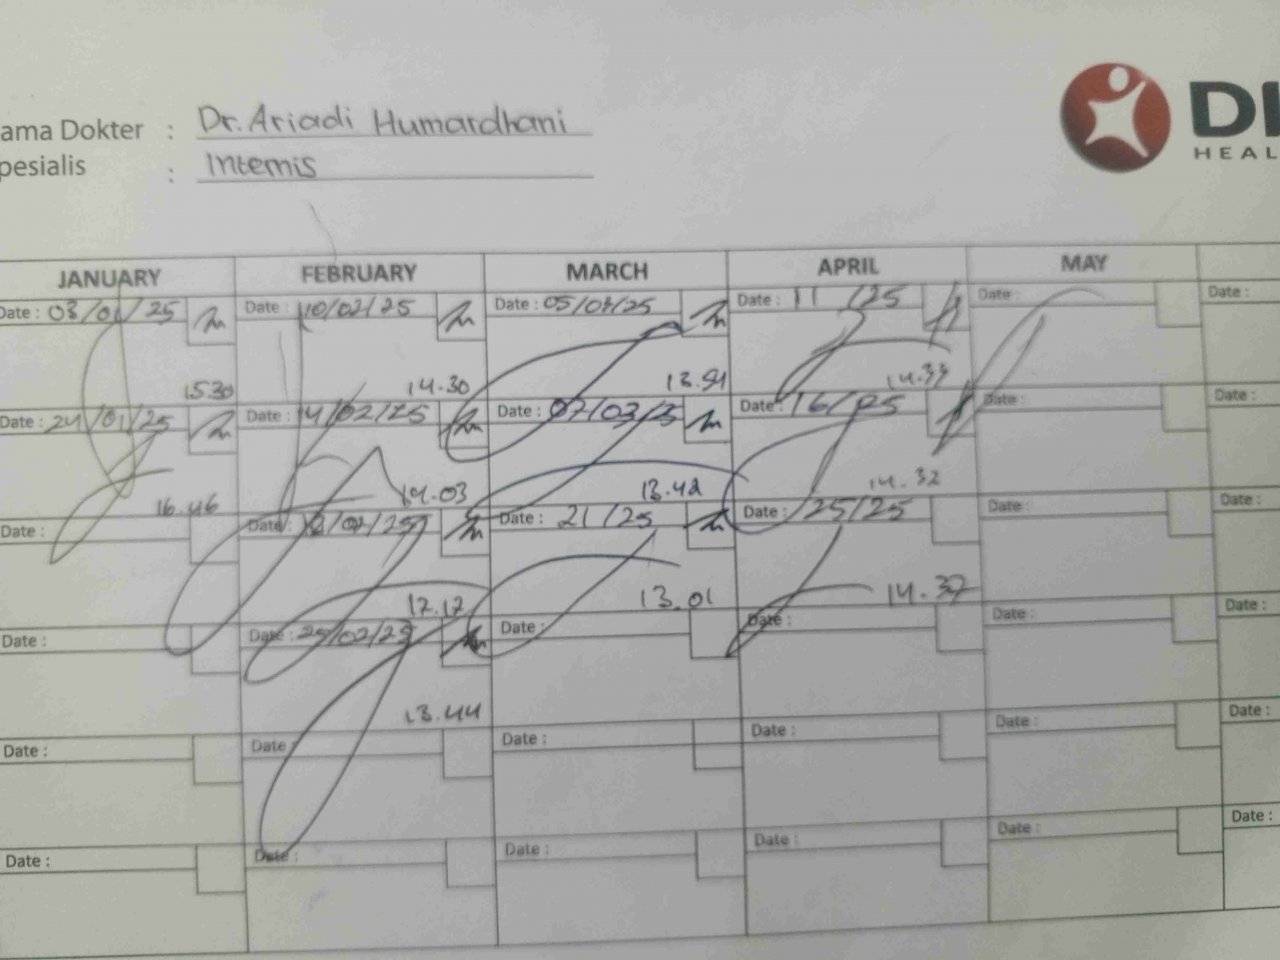 ama Dokter : Dr. Ariadi Humardhani
pesialis : Internis
DI
HEAL
JANUARY FEBRUARY MARCH APRIL MAY
Date : 03/01/25 Date : 10/02/25 Date : 05/03/25 Date : 11 /25 Date : Date :
15.30 14.30 13.51 14.33
Date : 24/01/25 Date : 14/02/25 Date : 07/03/25 Date : 16/ /25 Date : Date :
16.46 14.03 13.42 14.32
Date : Date : /02/25 Date : 21 /25 Date : /25/25 Date : Date :
17.17 13.01 14.37
Date : Date : 25/02/25 Date : Date : Date : Date :
13.44
Date : Date Date : Date : Date : Date :
Date : Date : Date : Date : Date : Date :